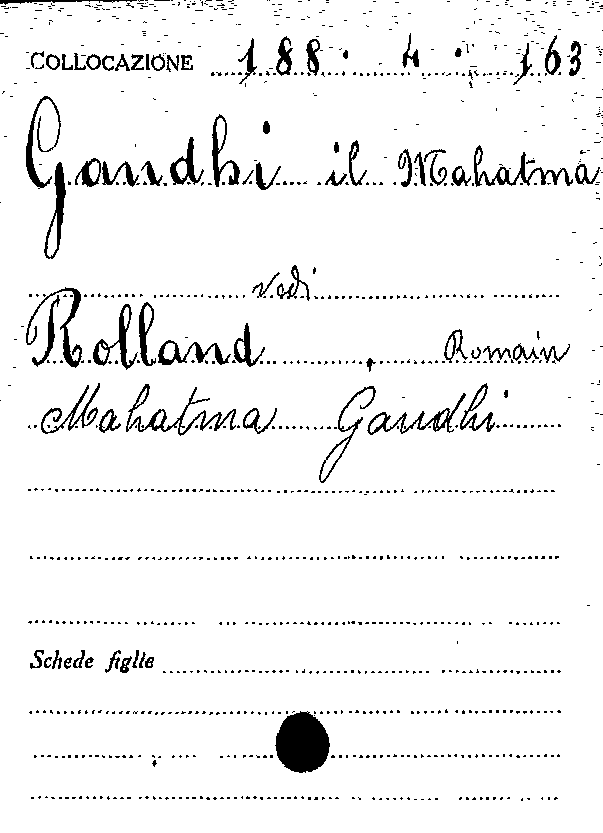 COLLOCAZIONE 188. 4. 163
Gandhi il Mahatma
vedi
Rolland, Romain
Mahatma Gandhi
Schede figlie